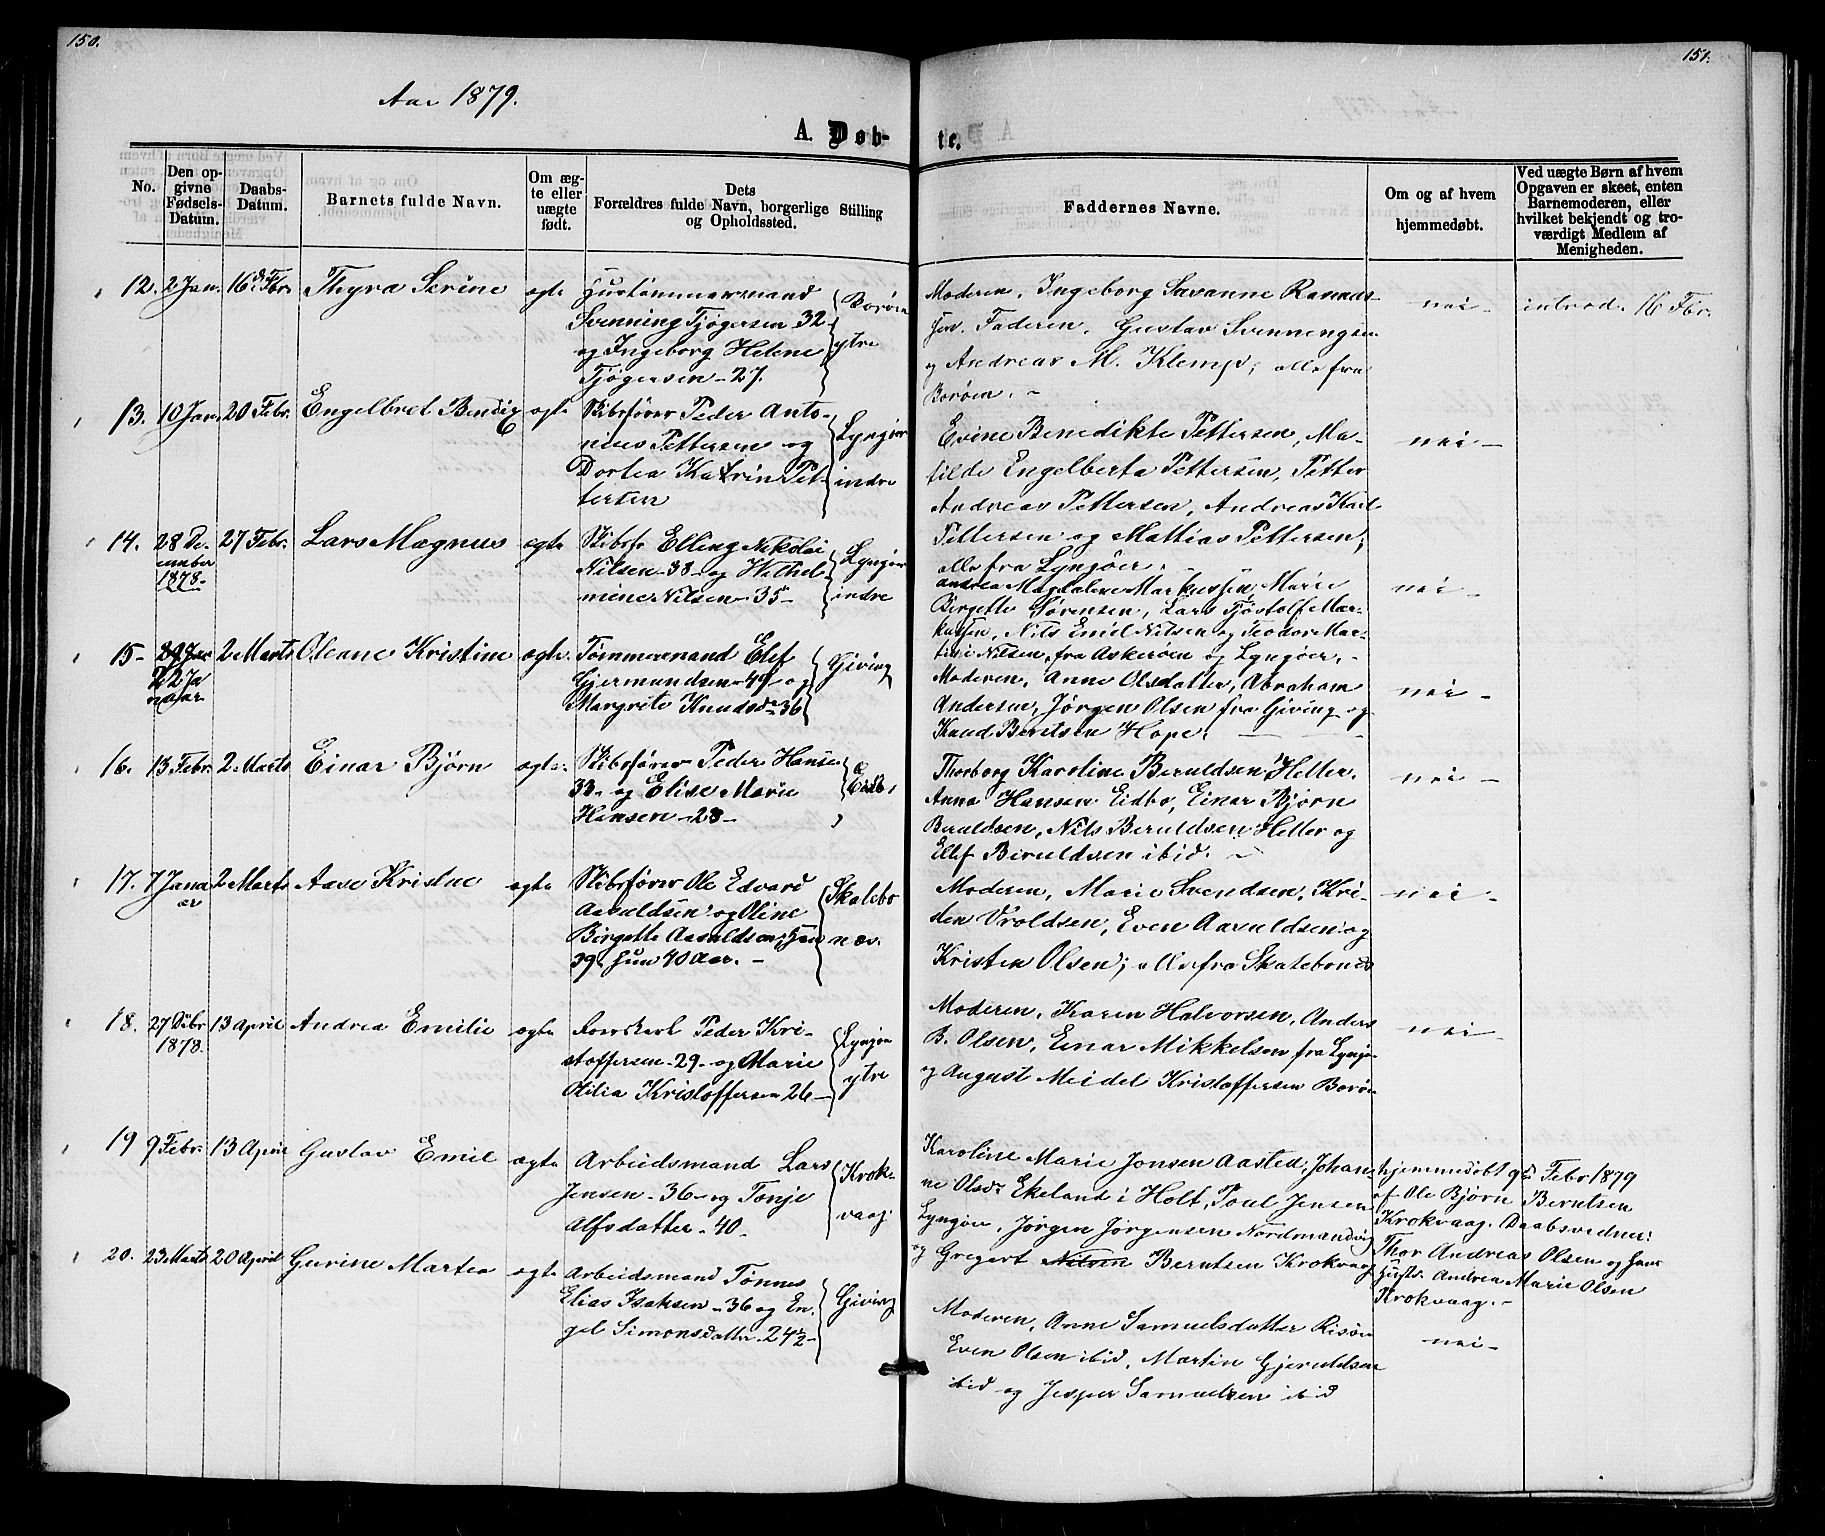 150.
151.
Aar 1879.
A. Døb-
te.
No.
Den op-
givne
Fødsels-
Datum.
Daabs-
Datum.
Barnets fulde Navn.
Om æg-
te eller
uægte
født.
Dets
Forældres fulde Navn, borgerlige Stilling
og Opholdssted.
Faddernes Navne.
Om og af hvem
hjemmedøbt.
Ved uægte Børn af hvem
Opgaven er skeet, enten
Barnemoderen, eller
hvilket bekjendt og tro-
værdigt Medlem af
Menigheden.
12. 2 Jan. 16de Fbr. Thyra Serine ægte
Svenning Tjøgersen 32
og Ingeborg Helene
Tjøgersen - 27.
Borøen
ytre
Moderen, Ingeborg Savanne Rasmus-
sen. Faderen, Gustav Svenningsen
og Andreas M. Klemp; alle fra
Borøen. -
nei -
introd. 16 Fbr.
13. 10 Jan. 20 Febr. Engelbret Bendix ægte
Skibsfører Peder Anto-
nius Pettersen og
Dortea Katrin Pet-
tersen
Lyngør
indre
Evine Benedikte Pettersen, Ma-
tilde Engelberta Pettersen, Petter
Andreas Pettersen, Andreas Karl
Pettersen og Mathias Pettersen;
alle fra Lyngøer.
nei -
14. 28 De-
cember
1878- 27 Febr. Lars Magnus ægte
Skibsfø Elling Nikolai
Nilsen - 38 - og Wilhel-
mine Nilsen - 35 -
Lyngør
indre
Andrea Magdalene Markussen, Marie
Birgette Sørensen, Lars Tjøstolf Mar-
kussen, Nils Emil Nilsen og Teodor Mar-
tin Nilsen, fra Askerøen og Lyngøer. -
nei -
15- 29 Jan
22 Ja
nuar 2 Marts Oleane Kristine ægte.
Tømmermand Elef
Gjermundsen - 49 - og
Margrete Knudsdr 36
Giving
Moderen, Anne Olsdatter, Abraham
Andersen, Jørgen Olsen fra Giving og
Knud Berntsen Hope. -
nei -
16. 13 Febr. 2 Marts Einar Bjørn ægte.
Skibsfører Peder Hansen
33 - og Elise Marie
Hansen - 28 -
Eidbo
Thorborg Karoline Beruldsen Helle,
Anna Hansen Eidbo, Einar Bjørn
Beruldsen, Nils Beruldsen Helle og
Ellef Beruldsen ibid. -
nei -
17. 7 Janu
ar 2 Marts Aase Kristine ægte
Skibsfører Ole Edvard
Aaruldsen og Oline
Birgette Aaruldsen; han
39, hun 40 Aar. -
Skatebo
næs.
Moderen, Marie Svendsen, Kri-
sten Vroldsen, Even Aaruldsen og
Kristen Olsen; alle fra Skatebonæs
nei -
18. 27 Debr
1878. 13 April Andrea Emilie ægte
Peder Kri-
stoffersen - 29 - og Marie
Otilia Kristoffersen 26 -
Lyngør
ytre
Moderen, Karen Halvorsen, Anders
B. Olsen, Einar Mikkelsen fra Lyngør
og August Meidel Kristoffersen Borøen
nei -
19 9 Febr. 13 April Gustav Emil ægte
Arbeidsmand Lars
Jensen - 36 - og Tonje
Alfsdatter - 40 -
Krok-
vaag.
Karoline Marie Jonsen Aasted, Johan-
ne Olsdr Ekeland i Holt, Poul Jensen
Lyngør, Jørgen Jørgensen Nordmandvig
og Gregert Nilsen Berntsen Krokvaag
hjemmedøbt 9de Febr 1879
af Ole Bjørn Berntsen
Krokvaag. Daabsvidner:
Thor Andreas Olsen og hans
Hustr. Andrea Marie Olsen
Krokvaag. -
20. 23 Marts 20 April Gurine Martea ægte
Arbeidsmand Tønnes
Elias Isaksen - 36 og En-
gel Simonsdatter - 24½ -
Giving
Moderen, Anne Samuelsdatter Risøen
Even Olsen ibid, Martin Gjeruldsen
ibid og Jesper Samuelsen ibid
nei -